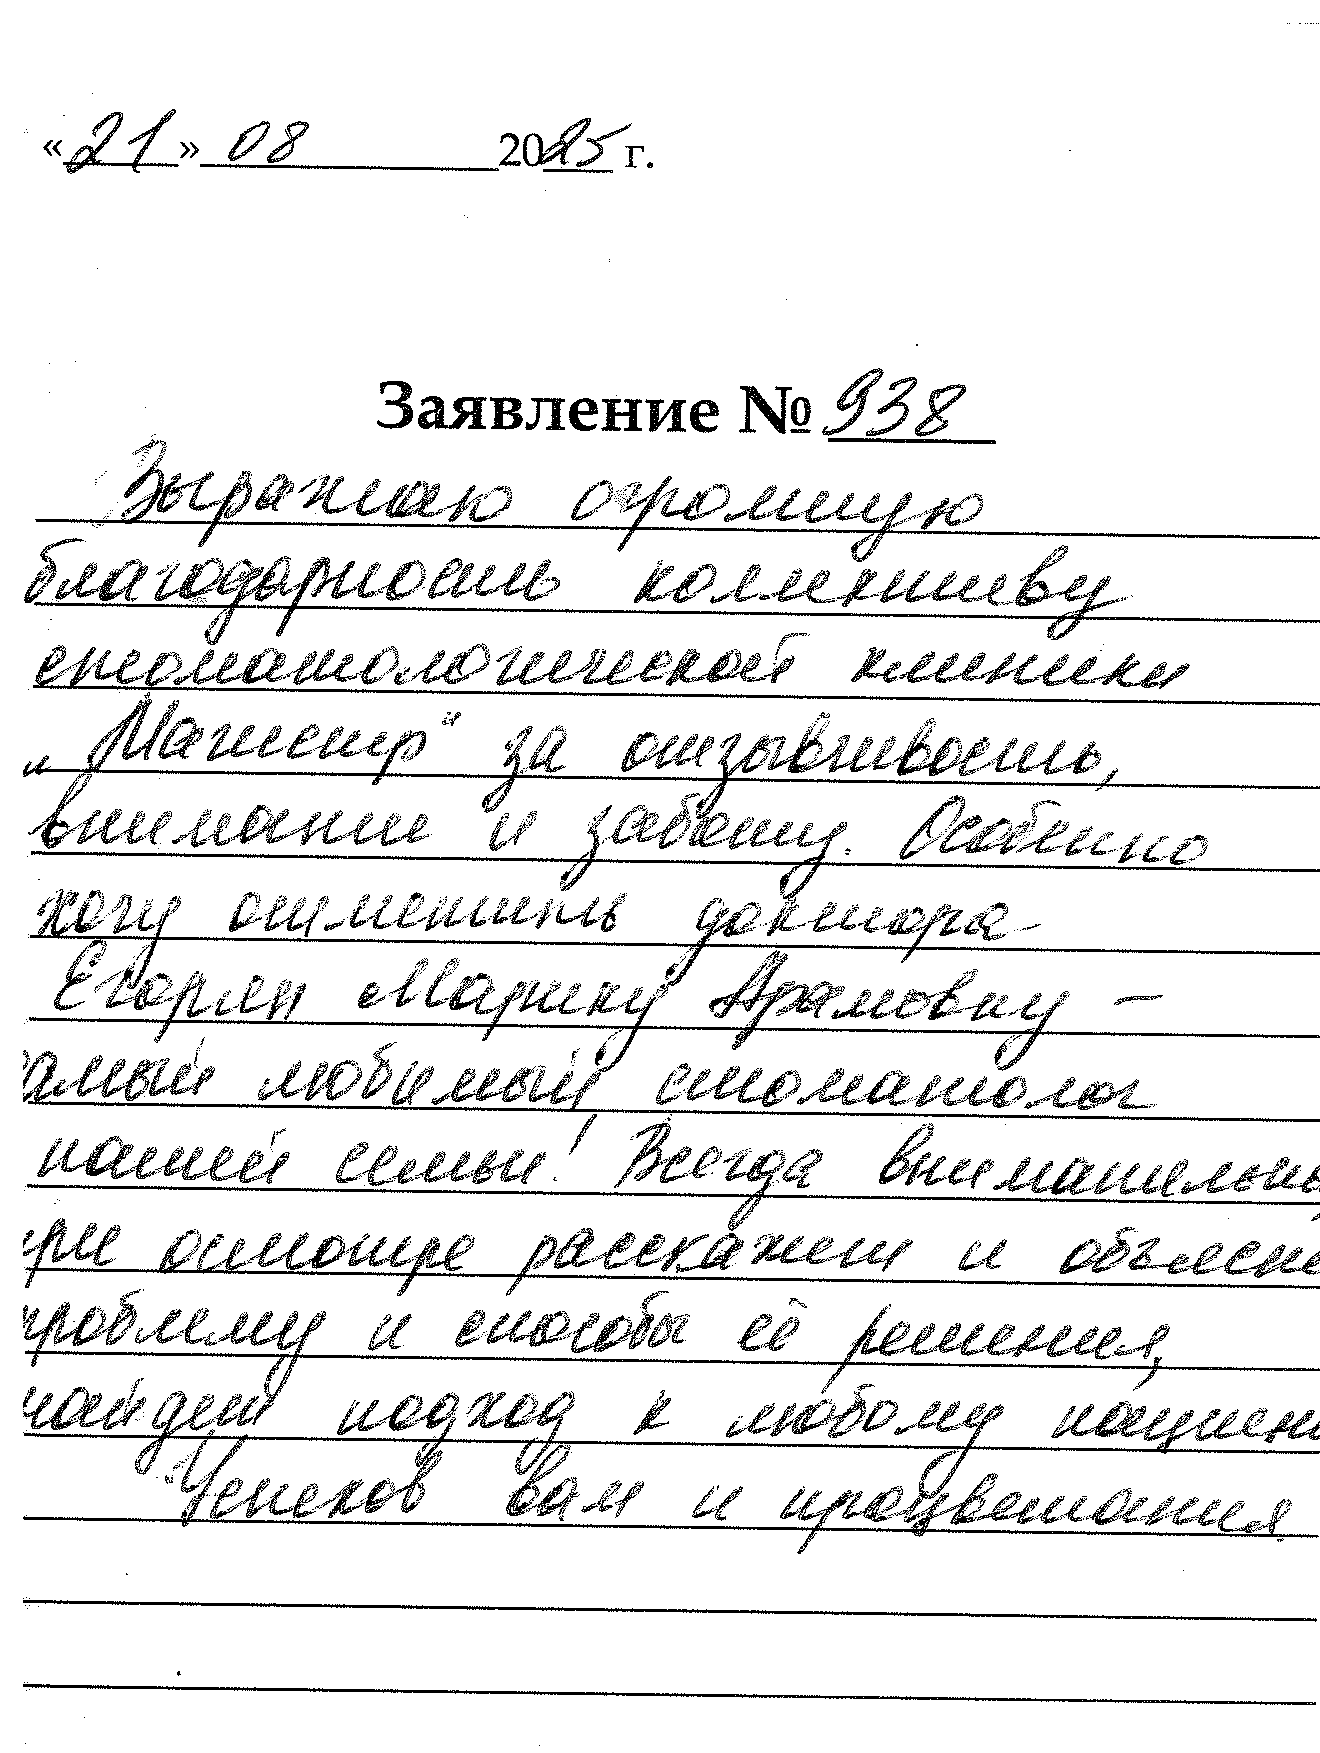 «21» 08 2025 г.
Заявление № 938
Выражаю огромную
благодарность коллективу
стоматологической клиники
„Магистр“ за отзывчивость,
внимание и заботу. Особенно
хочу отметить доктора
Егорян Марину Арамовну –
самый любимый стоматолог
нашей семьи! Всегда внимательны
при осмотре расскажет и объясне
проблему и способы её решения,
найдет подход к любому пациен
Успехов вам и процветания.